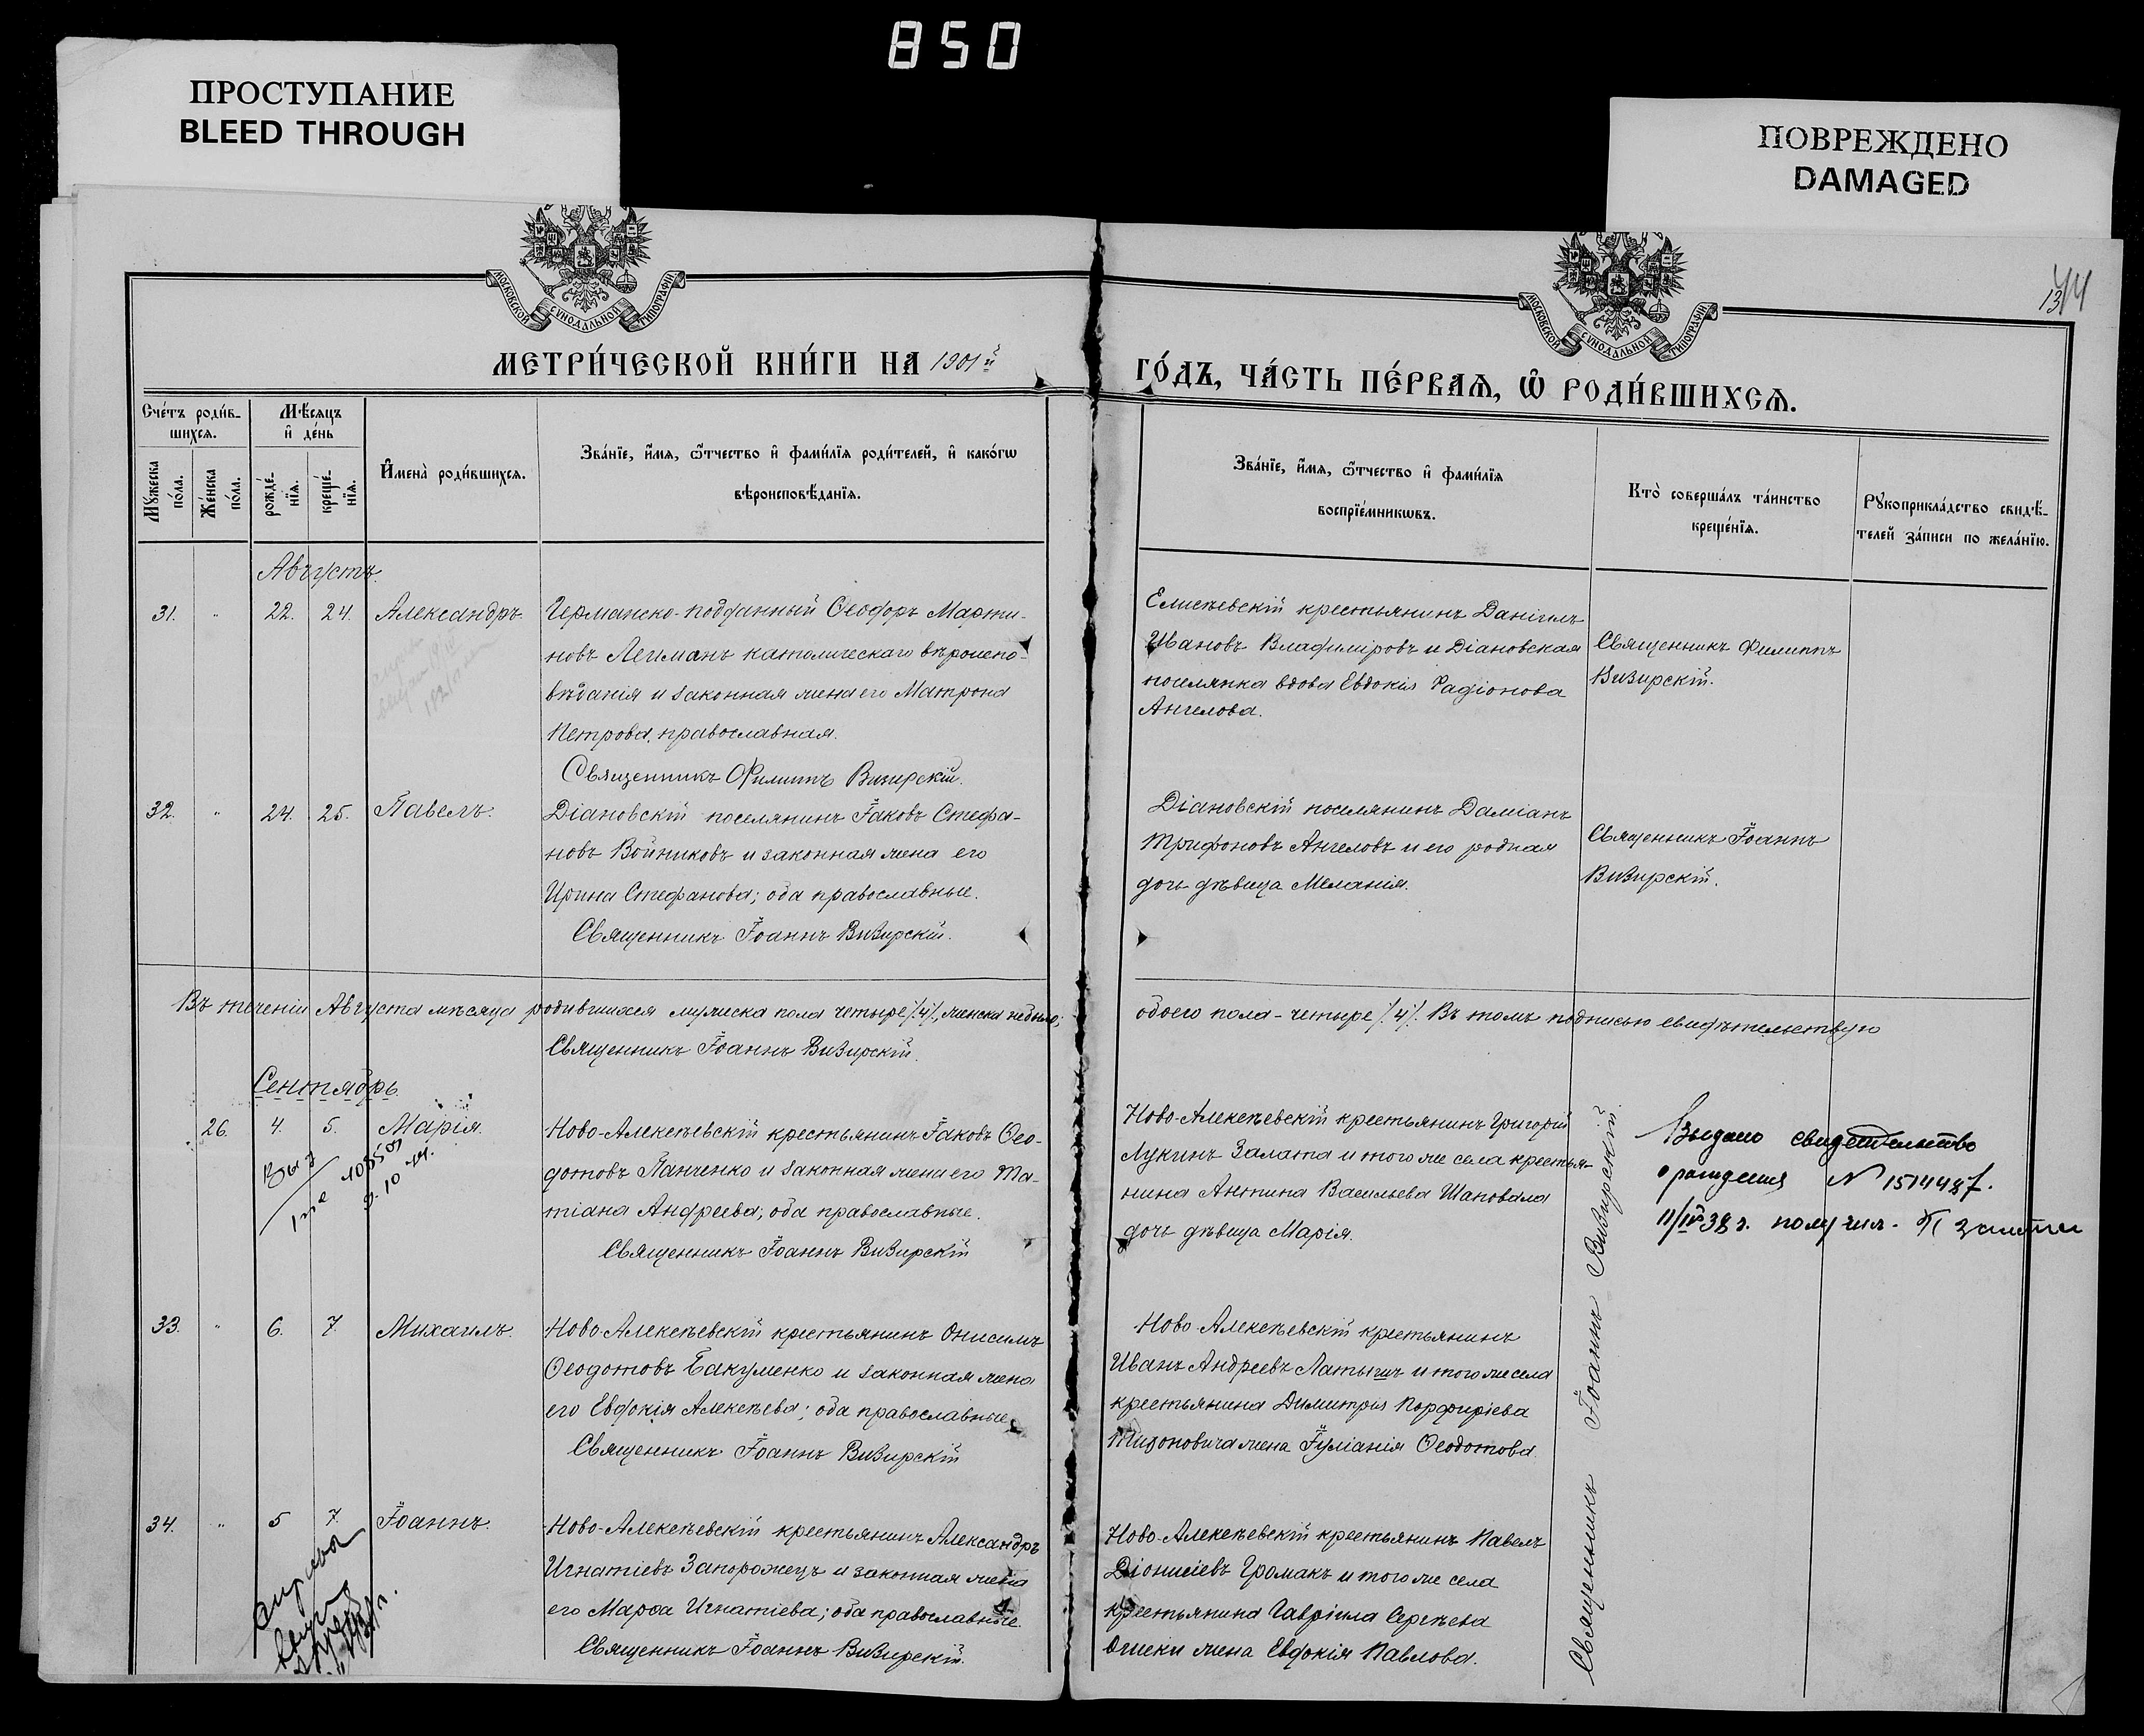 850
ПРОСТУПАНИЕ
BLEED THROUGH
ПОВРЕЖДЕНО
DAMAGED
МОСКОВСКОЙ СѴНОДАЛЬНОЙ ТИПОГРАФІИ
МОСКОВСКОЙ СѴНОДАЛЬНОЙ ТИПОГРАФІИ
МЕТРИ́ЧЕСКОЙ КНИ́ГИ НА 1901й
ГО́ДЪ, ЧА́СТЬ ПЕ́РВАѦ, Ѡ҆ РОДИ́ВШИХСѦ.
Сче́тъ роди́в-
шихся.
Мѣ́сяцъ
и҆ де́нь
Мꙋ́жеска
по́ла.
Же́нска
по́ла.
рожде́-
нїѧ.
креще́-
нїѧ.
И҆мена̀ роди́вшихсѧ.
Зва́нїе, и҆́мѧ, ѻ҆́тчество и҆ фами́лїѧ роди́телей, и҆ како́гѡ
вѣроисповѣ́данїѧ.
Зва́нїе, и҆́мѧ, ѻ҆́тчество и҆ фами́лїѧ
воспрїе́мникѡвъ.
Кто̀ соверша́лъ та́инство
креще́нїѧ.
Рꙋкоприкла́дство свидѣ́-
телей за́писи по жела́нїю.
Августъ.
31. " 22. 24. Александръ.
Германско-подданный Ѳеодоръ Марти-
новъ Лейманъ католическаго вѣроиспо-
вѣданія и законная жена его Матрона
Петрова, православная.
Священникъ Филиппъ Визирскій.
Елисѣевскій крестьянинъ Даніилъ
Ивановъ Владиміровъ и Діановская
поселянка вдова Евдокія Радіонова
Ангелова.
Священникъ Филиппъ
Визирскій.
32. " 24. 25. Павелъ.
Діановскій поселянинъ Іаковъ Стефа-
новъ Войниковъ и законная жена его
Ирина Стефанова; оба православные.
Священникъ Іоаннъ Визирскій.
Діановскій поселянинъ Даміанъ
Трифоновъ Ангеловъ и его родная
дочь дѣвица Меланія.
Священникъ Іоаннъ
Визирскій.
Въ теченіи Августа мѣсяца родившихся мужеска пола четыре /.4/., женска не было;
обоего пола - четыре /.4/. Въ томъ подписью свидѣтельствую
Священникъ Іоаннъ Визирскій.
Сентябрь.
26. 4. 5. Марія.
Ново-Алексѣевскій крестьянинъ Іаковъ Ѳео-
дотовъ Панченко и законная жена его Та-
тіана Андреева; оба православные.
Священникъ Іоаннъ Визирскій
Ново-Алексѣевскій крестьянинъ Григорій
Лукинъ Залата и того же села крестья-
нина Антина Васильева Шаповала
дочь дѣвица Марія.
Выдано свидетельство
о рождения N 1514487.
11/IV 38 г. получил.
33. " 6. 7. Михаилъ.
Ново-Алексѣевскій крестьянинъ Онисимъ
Ѳеодотовъ Бакуменко и законная жена
его Евдокія Алексѣева; оба православные.
Священникъ Іоаннъ Визирскій
Ново-Алексѣевскій крестьянинъ
Иванъ Андреевъ Латышъ и того же села
крестьянина Димитрія Порфиріева
Тихоновича жена Іуліанія Ѳеодотова.
34. " 5 7. Іоаннъ.
Ново-Алексѣевскій крестьянинъ Александръ
Игнатіевъ Запорожецъ и законная жена
его Марѳа Игнатіева; оба православные.
Священникъ Іоаннъ Визирскій.
Ново-Алексѣевскій крестьянинъ Павелъ
Діонисіевъ Громакъ и того же села
крестьянина Гавріила Сергѣева
жена Евдокія Павлова.
Священникъ Іоаннъ Визирскій.